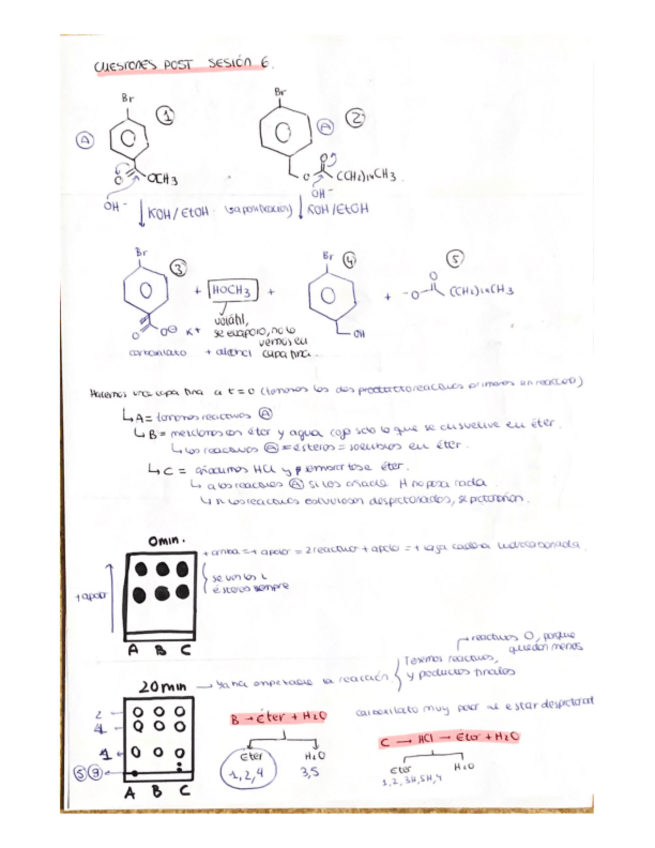 CUESTIONES POST SESIÓN 6.
Br
Br
A
1
A
2
O
OCH3
O
O
(CH2)14CH3
OH-
KOH/EtOH
OH-
KOH/EtOH
Br
3
Br
4
5
+ HOCH3 +
+ -O
O
OH
O
O⊖ K+
volátil,
se evaporó, no lo
vemos en
capa fina.
carboxilato +
Hacemos una capa fina a t=0
A = tomamos reactivos A
B = mezclamos con éter y agua cojo solo lo que se disuelve en éter.
los reactivos A = ésteres = solubles en éter.
C = añadimos HCl y éter.
a los reactivos A si los añado H no pasa nada.
si los reactivos estuviesen desprotonados, se protonarían.
0 min.
+ arriba = - apolar = 2 reactivo + apolar = + larga cadena hidrocarbonada.
+ apolar
se ven los 2
ésteres siempre
A B C
reactivos O, porque
quedan menos
20 min → Ya ha empezado la reacción.
Tenemos reactivos,
y productos finales
carboxilato muy polar al estar desprotonat
2
4
1
5 3
A B C
B → éter + H2O
Éter
H2O
1, 2, 4
3, 5
C → HCl → Éter + H2O
Éter
H2O
1, 2, 3H, 5H, 4